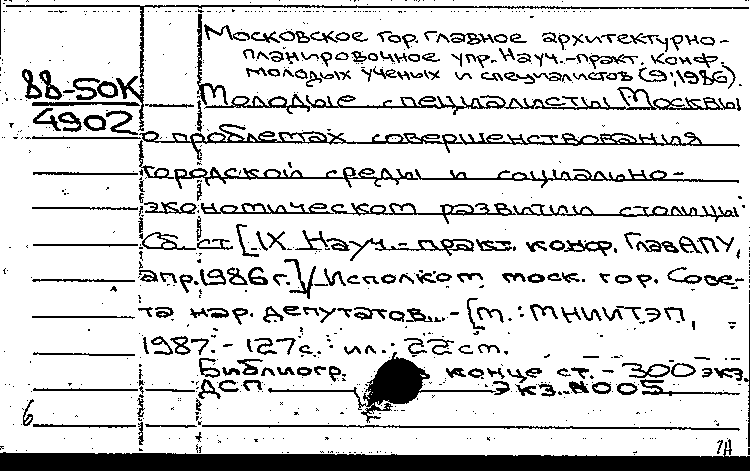 Московское гор. главное архитектурно-
планировочное упр. Науч.-практ. конф.
молодых ученых и специалистов (9; 1986).
88-50К
4902
Молодые специалисты Москвы
о проблемах совершенствования
городской среды и социально-
экономическом развитии столицы:
Сб. ст. [IX Науч.- практ. конф. ГлавАПУ,
апр. 1986 г.] / Исполком моск. гор. Сове-
та нар. депутатов... - [М.: МНИИТЭП,
1987. - 127 с.: ил.; 22 см.
Библиогр. конце ст. - 300 экз.
ДСП. Экз. N005.
6